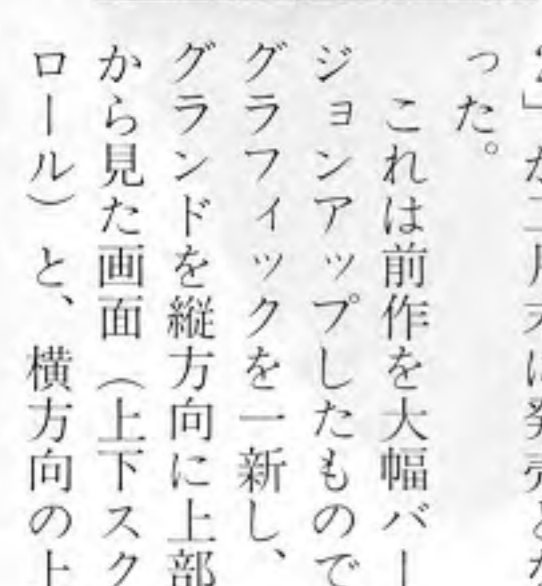 2」が二月末に発売とな
った。
これは前作を大幅バー
ジョンアップしたもので
グラフィックを一新し、
グランドを縦方向に上部
から見た画面（上下スク
ロール）と、横方向の上